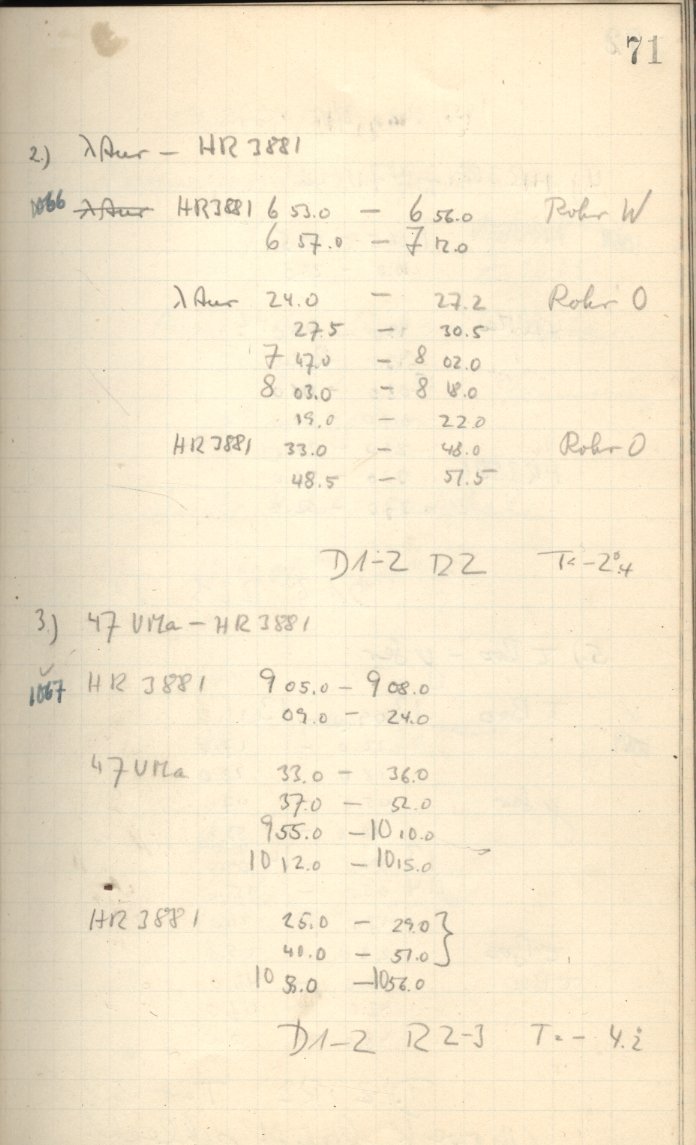 71
2.) λ Aur – HR 3881
1066 λ Aur HR3881 6 53.0 – 6 56.0 Rohr W
6 57.0 – 7 12.0
λ Aur 24.0 – 27.2 Rohr O
27.5 – 30.5
7 47.0 – 8 02.0
8 03.0 – 8 18.0
19.0 – 22.0
HR3881 33.0 – 48.0 Rohr O
48.5 – 51.5
D1-2 R2 T= -2°.4
3.) 47 UMa – HR 3881
1067 HR 3881 9 05.0 – 9 08.0
09.0 – 24.0
47 UMa 33.0 – 36.0
37.0 – 52.0
9 55.0 – 10 10.0
10 12.0 – 10 15.0
HR 3881 – 29.0 }
– }
10 – 10 56.0
D1-2 R2-3 T= -